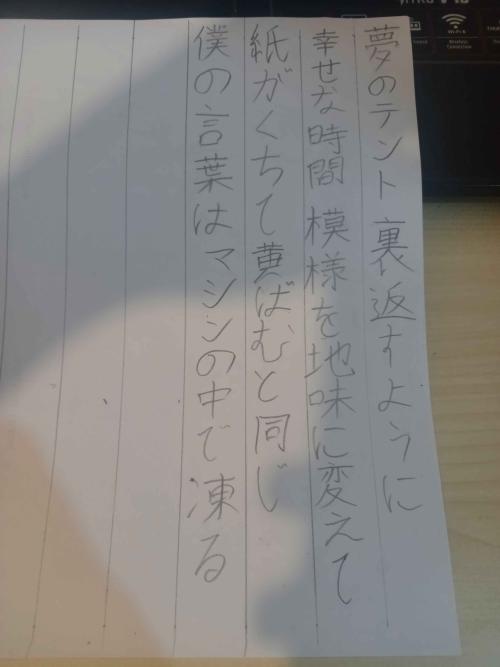 夢のテント裏返すように
幸せな時間 模様を地味に変えて
紙がくちて黄ばむと同じ
僕の言葉はマシンの中で凍る
Wi-Fi 6